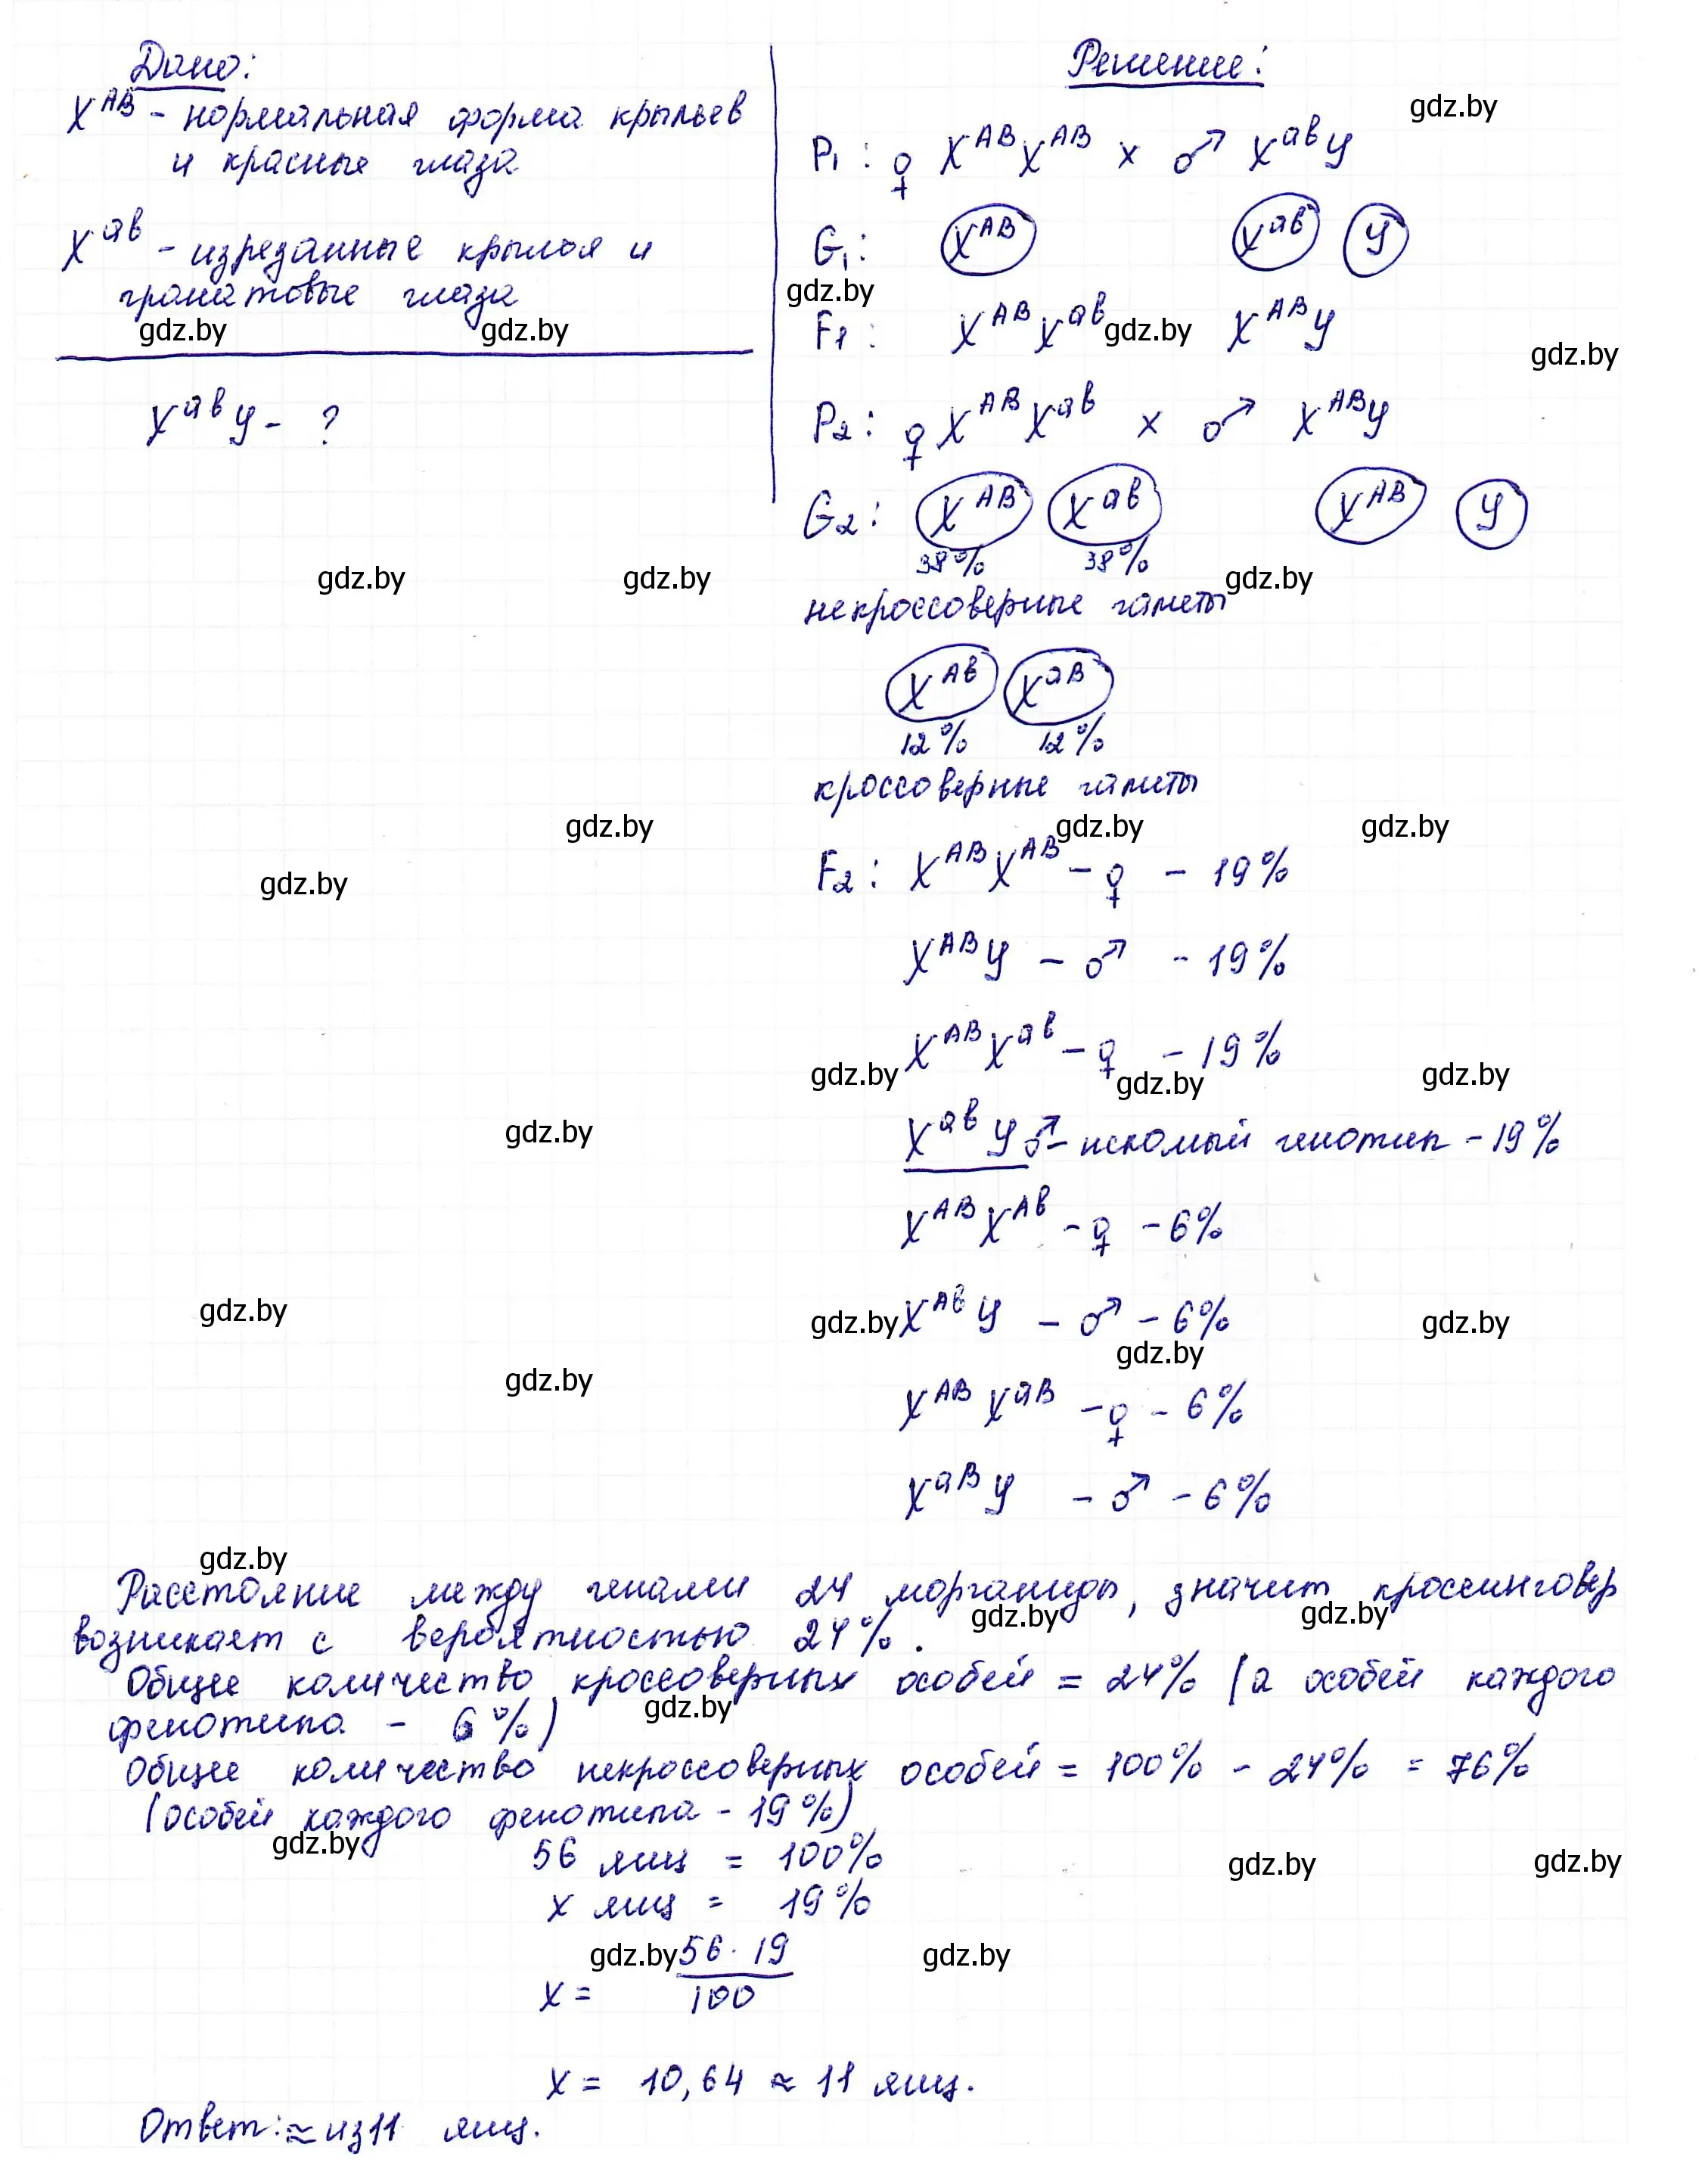 Дано:
X^AB - нормальная форма крыльев
и красные глаза
X^ab - изрезанные крылья и
гранатовые глаза
gdz.by gdz.by
X^ab У - ?
Решение:
gdz.by
P1: ♀ X^AB X^AB × ♂ X^ab У
G1: X^AB X^ab У
gdz.by
F1: X^AB X^ab gdz.by X^AB У
gdz.by
P2: ♀ X^AB X^ab × ♂ X^AB У
G2: X^AB X^ab X^AB У
38% 38%
gdz.by gdz.by gdz.by
некроссоверные гаметы
X^Ab X^aB
12% 12%
кроссоверные гаметы
gdz.by gdz.by gdz.by
gdz.by
F2: X^AB X^AB - ♀ - 19%
X^AB У - ♂ - 19%
X^AB X^ab - ♀ - 19%
gdz.by gdz.by gdz.by
gdz.by
X^ab У ♂ - искомый генотип - 19%
X^AB X^Ab - ♀ - 6%
gdz.by
X^Ab У - ♂ - 6%
gdz.by gdz.by
gdz.by
gdz.by
X^AB X^aB - ♀ - 6%
X^aB У - ♂ - 6%
gdz.by
Расстояние между генами 24 морганиды, значит кроссинговер
gdz.by gdz.by
возникает с вероятностью 24%.
Общее количество кроссоверных особей = 24% (а особей каждого
gdz.by
фенотипа - 6%)
Общее количество некроссоверных особей = 100% - 24% = 76%
(особей каждого фенотипа - 19%)
gdz.by
56 яиц = 100%
gdz.by gdz.by
x яиц = 19%
gdz.by gdz.by
x = 56 · 19
100
x = 10,64 ≈ 11 яиц.
Ответ: ≈ из 11 яиц.